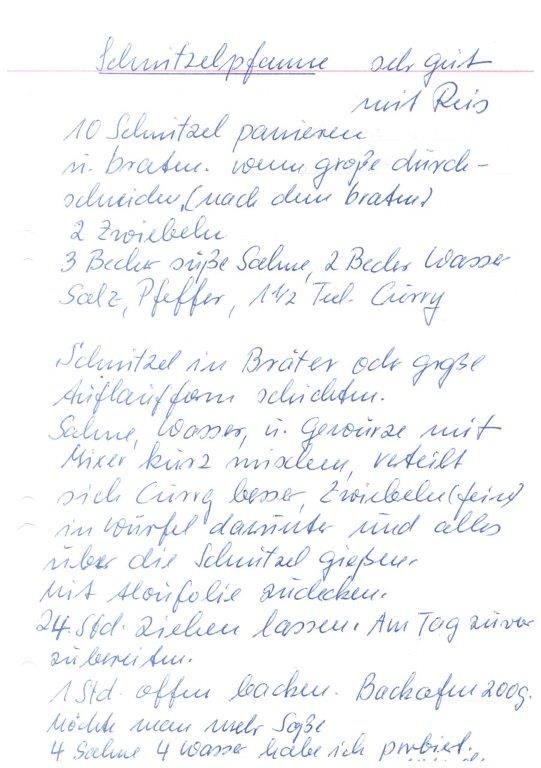 Schnitzelpfanne sehr gut
mit Reis
10 Schnitzel panieren
u. braten. wenn große durch-
schneiden, (nach dem braten)
2 Zwiebeln
3 Becher süße Sahne, 2 Becher Wasser
Salz, Pfeffer, 1 1/2 Teel. Curry
Schnitzel in Bräter oder große
Auflaufform schichten.
Sahne, Wasser, u. Gewürze mit
Mixer kurz mischen, verteilt
sich Curry besser, Zwiebeln (fein)
in Würfel darunter und alles
über die Schnitzel gießen.
Mit Aloufolie zudecken.
24 Std. ziehen lassen. Am Tag zuvor
zubereiten.
1 Std. offen backen. Backofen 200g.
Möchte man mehr Soße
4 Sahne 4 Wasser habe ich probiert.